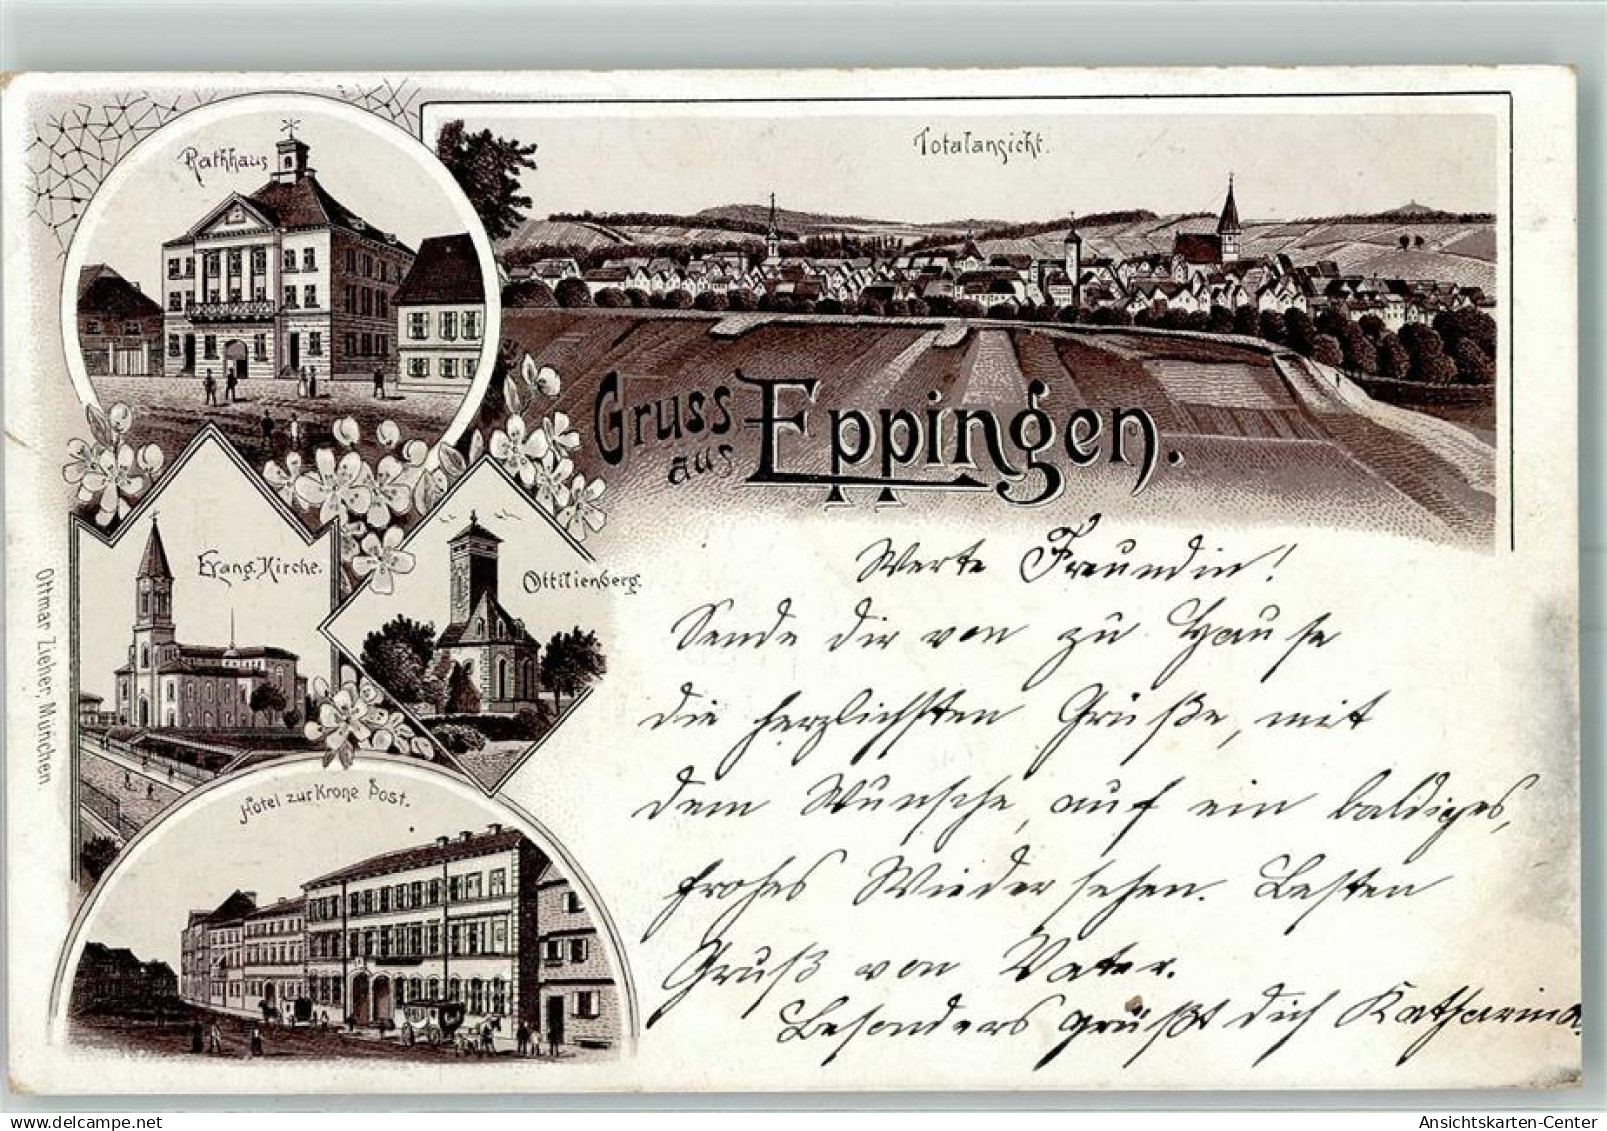 Rathhaus
Totalansicht.
Gruss
aus
Eppingen.
Evang. Kirche.
Ottilienberg.
Hotel zur Krone Post.
Ottmar Zieher, München.
Werte Freundin!
Sende dir von zu Hause
die herzlichsten Grüße, mit
dem Wunsche, auf ein baldiges,
frohes Wiedersehen. Besten
Gruß von Vater.
Besonders grüßt dich Katharina.
Ansichtskarten-Center